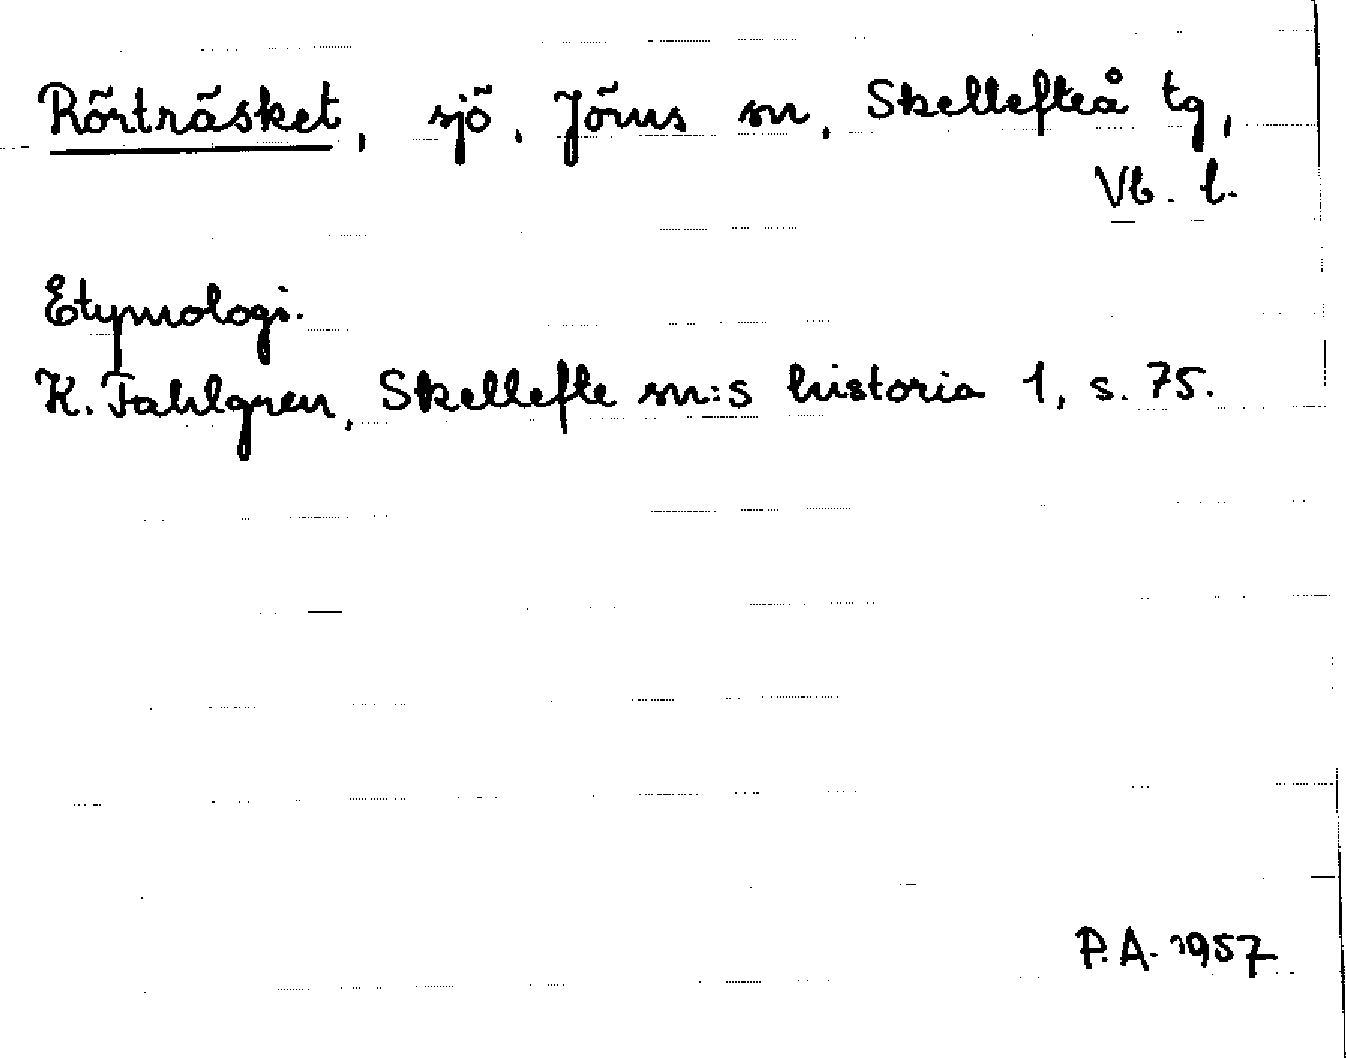 Rörträsket, sjö, Jörns sn, Skellefteå tg,
Vb. l.
Etymologi.
K. Fahlgren, Skellefte sn:s historia 1, s. 75.
P.A. 1957